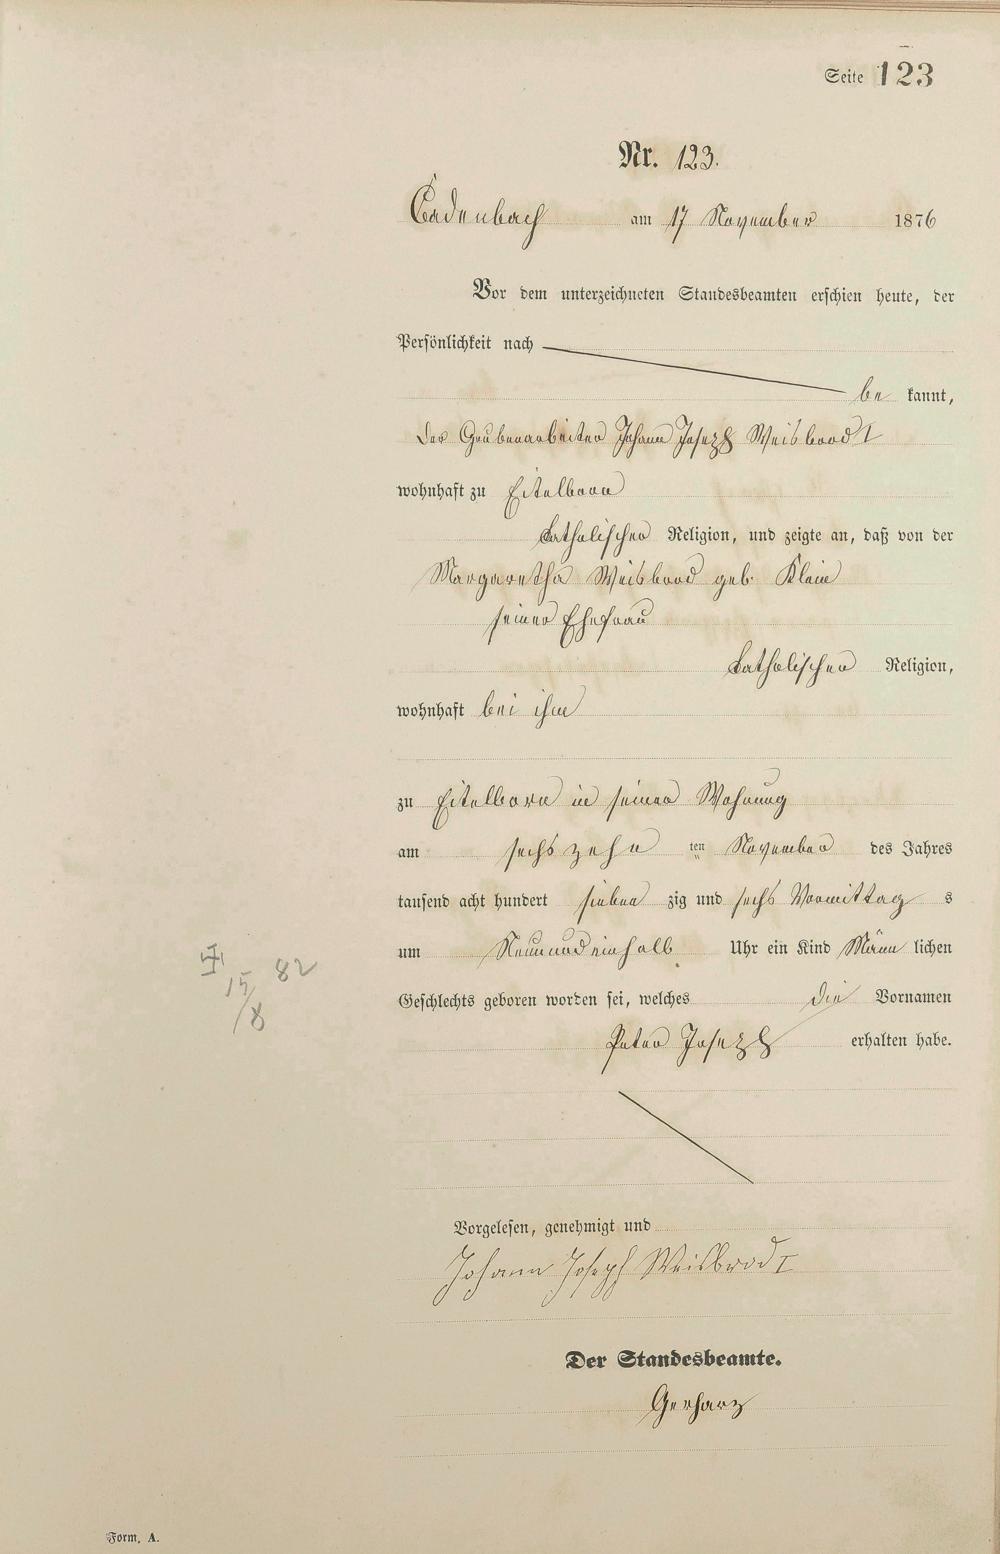 Seite 123
Nr. 123.
Cadenbach am 17 November 1876
Vor dem unterzeichneten Standesbeamten erschien heute, der
Persönlichkeit nach
be kannt,
der Grubenarbeiter Johann Joseph Weisbrod I
wohnhaft zu Eitelborn
katholischer Religion, und zeigte an, daß von der
Margaretha Weisbrod geb. Klein
seiner Ehefrau
katholischer Religion,
wohnhaft bei ihm
zu Eitelborn in seiner Wohnung
am sechszehn ten November des Jahres
tausend acht hundert sieben zig und sechs Vormittag s
um Neunundeinhalb Uhr ein Kind Männ lichen
Geschlechts geboren worden sei, welches die Vornamen
Peter Joseph erhalten habe.
82
15/8
Vorgelesen, genehmigt und
Johann Joseph Weisbrod I
Der Standesbeamte.
Gerharz
Form. A.